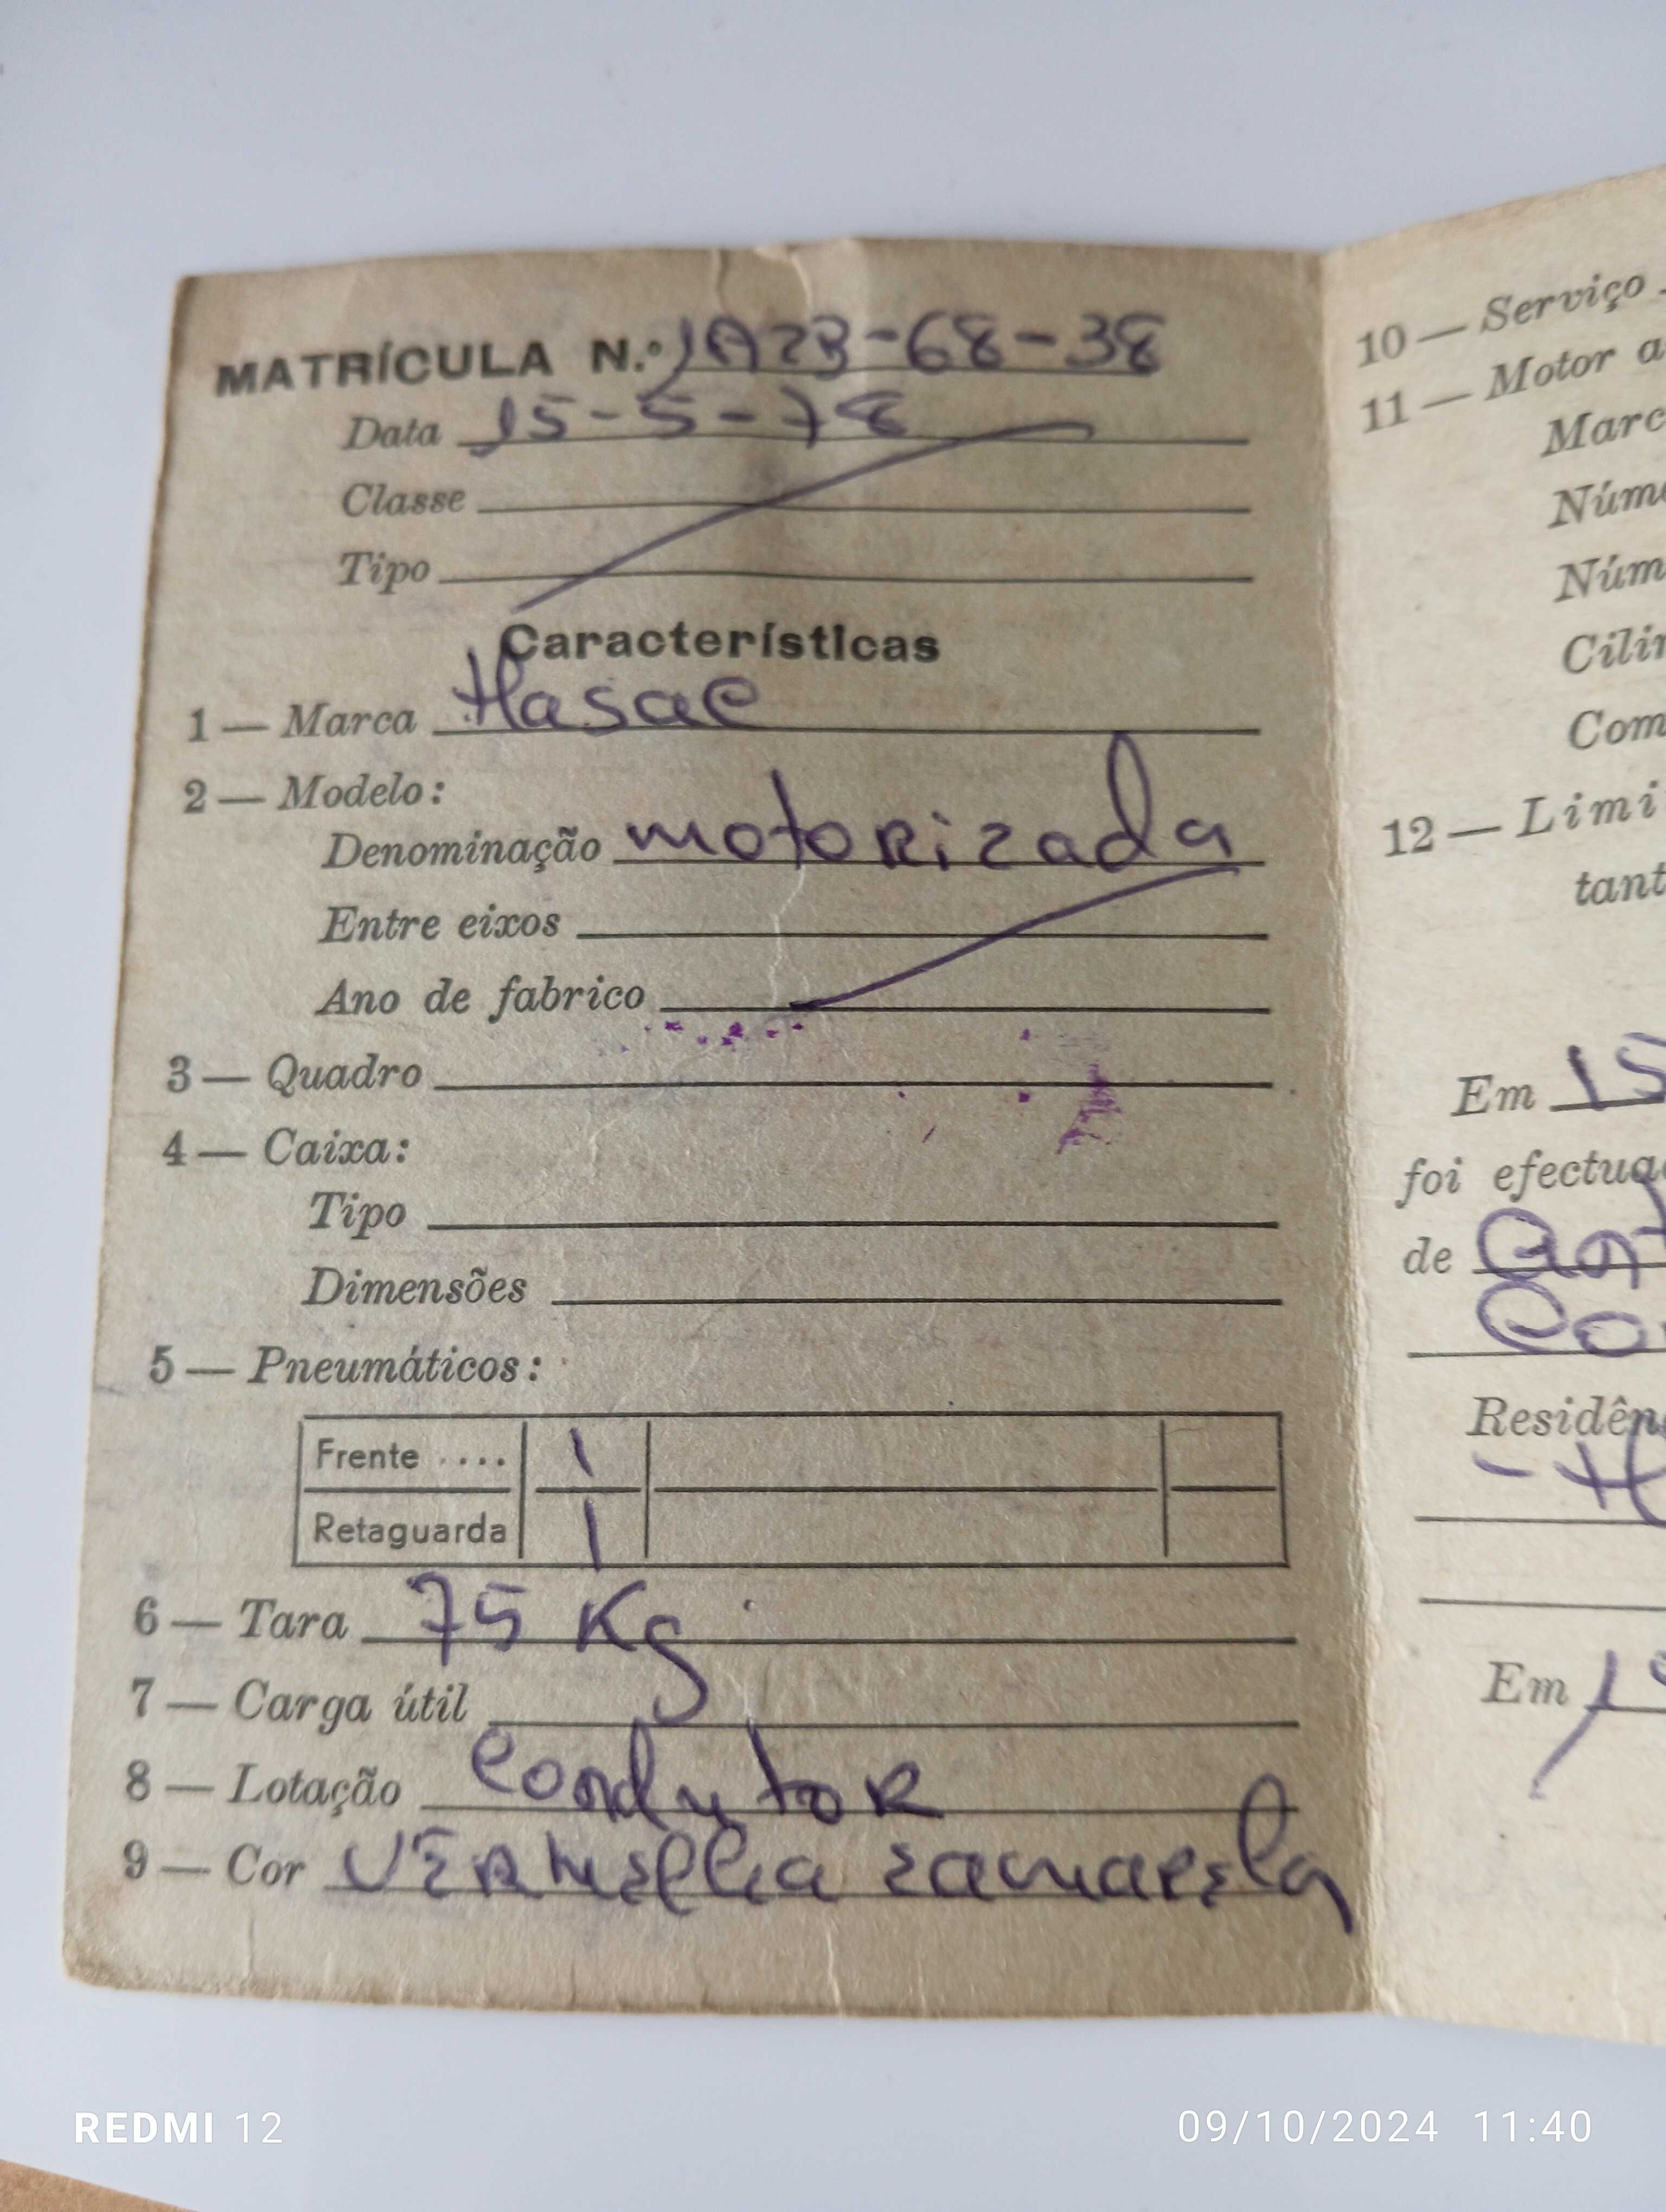 MATRÍCULA N.º 1AZB-68-38
Data 15-5-78
Classe
Tipo
Características
1 — Marca Hasae
2 — Modelo:
Denominação motorizada
Entre eixos
Ano de fabrico
3 — Quadro
4 — Caixa:
Tipo
Dimensões
5 — Pneumáticos:
Frente ....
Retaguarda
6 — Tara 75 Kg
7 — Carga útil
8 — Lotação Condutor
9 — Cor Vermelha e amarela
10 — Serviço
11 — Motor a
Marc
Núme
Núm
Cilin
Com
12 — Limi
tant
Em 15
foi efectua
de
Residên
Em
REDMI 12
09/10/2024 11:40